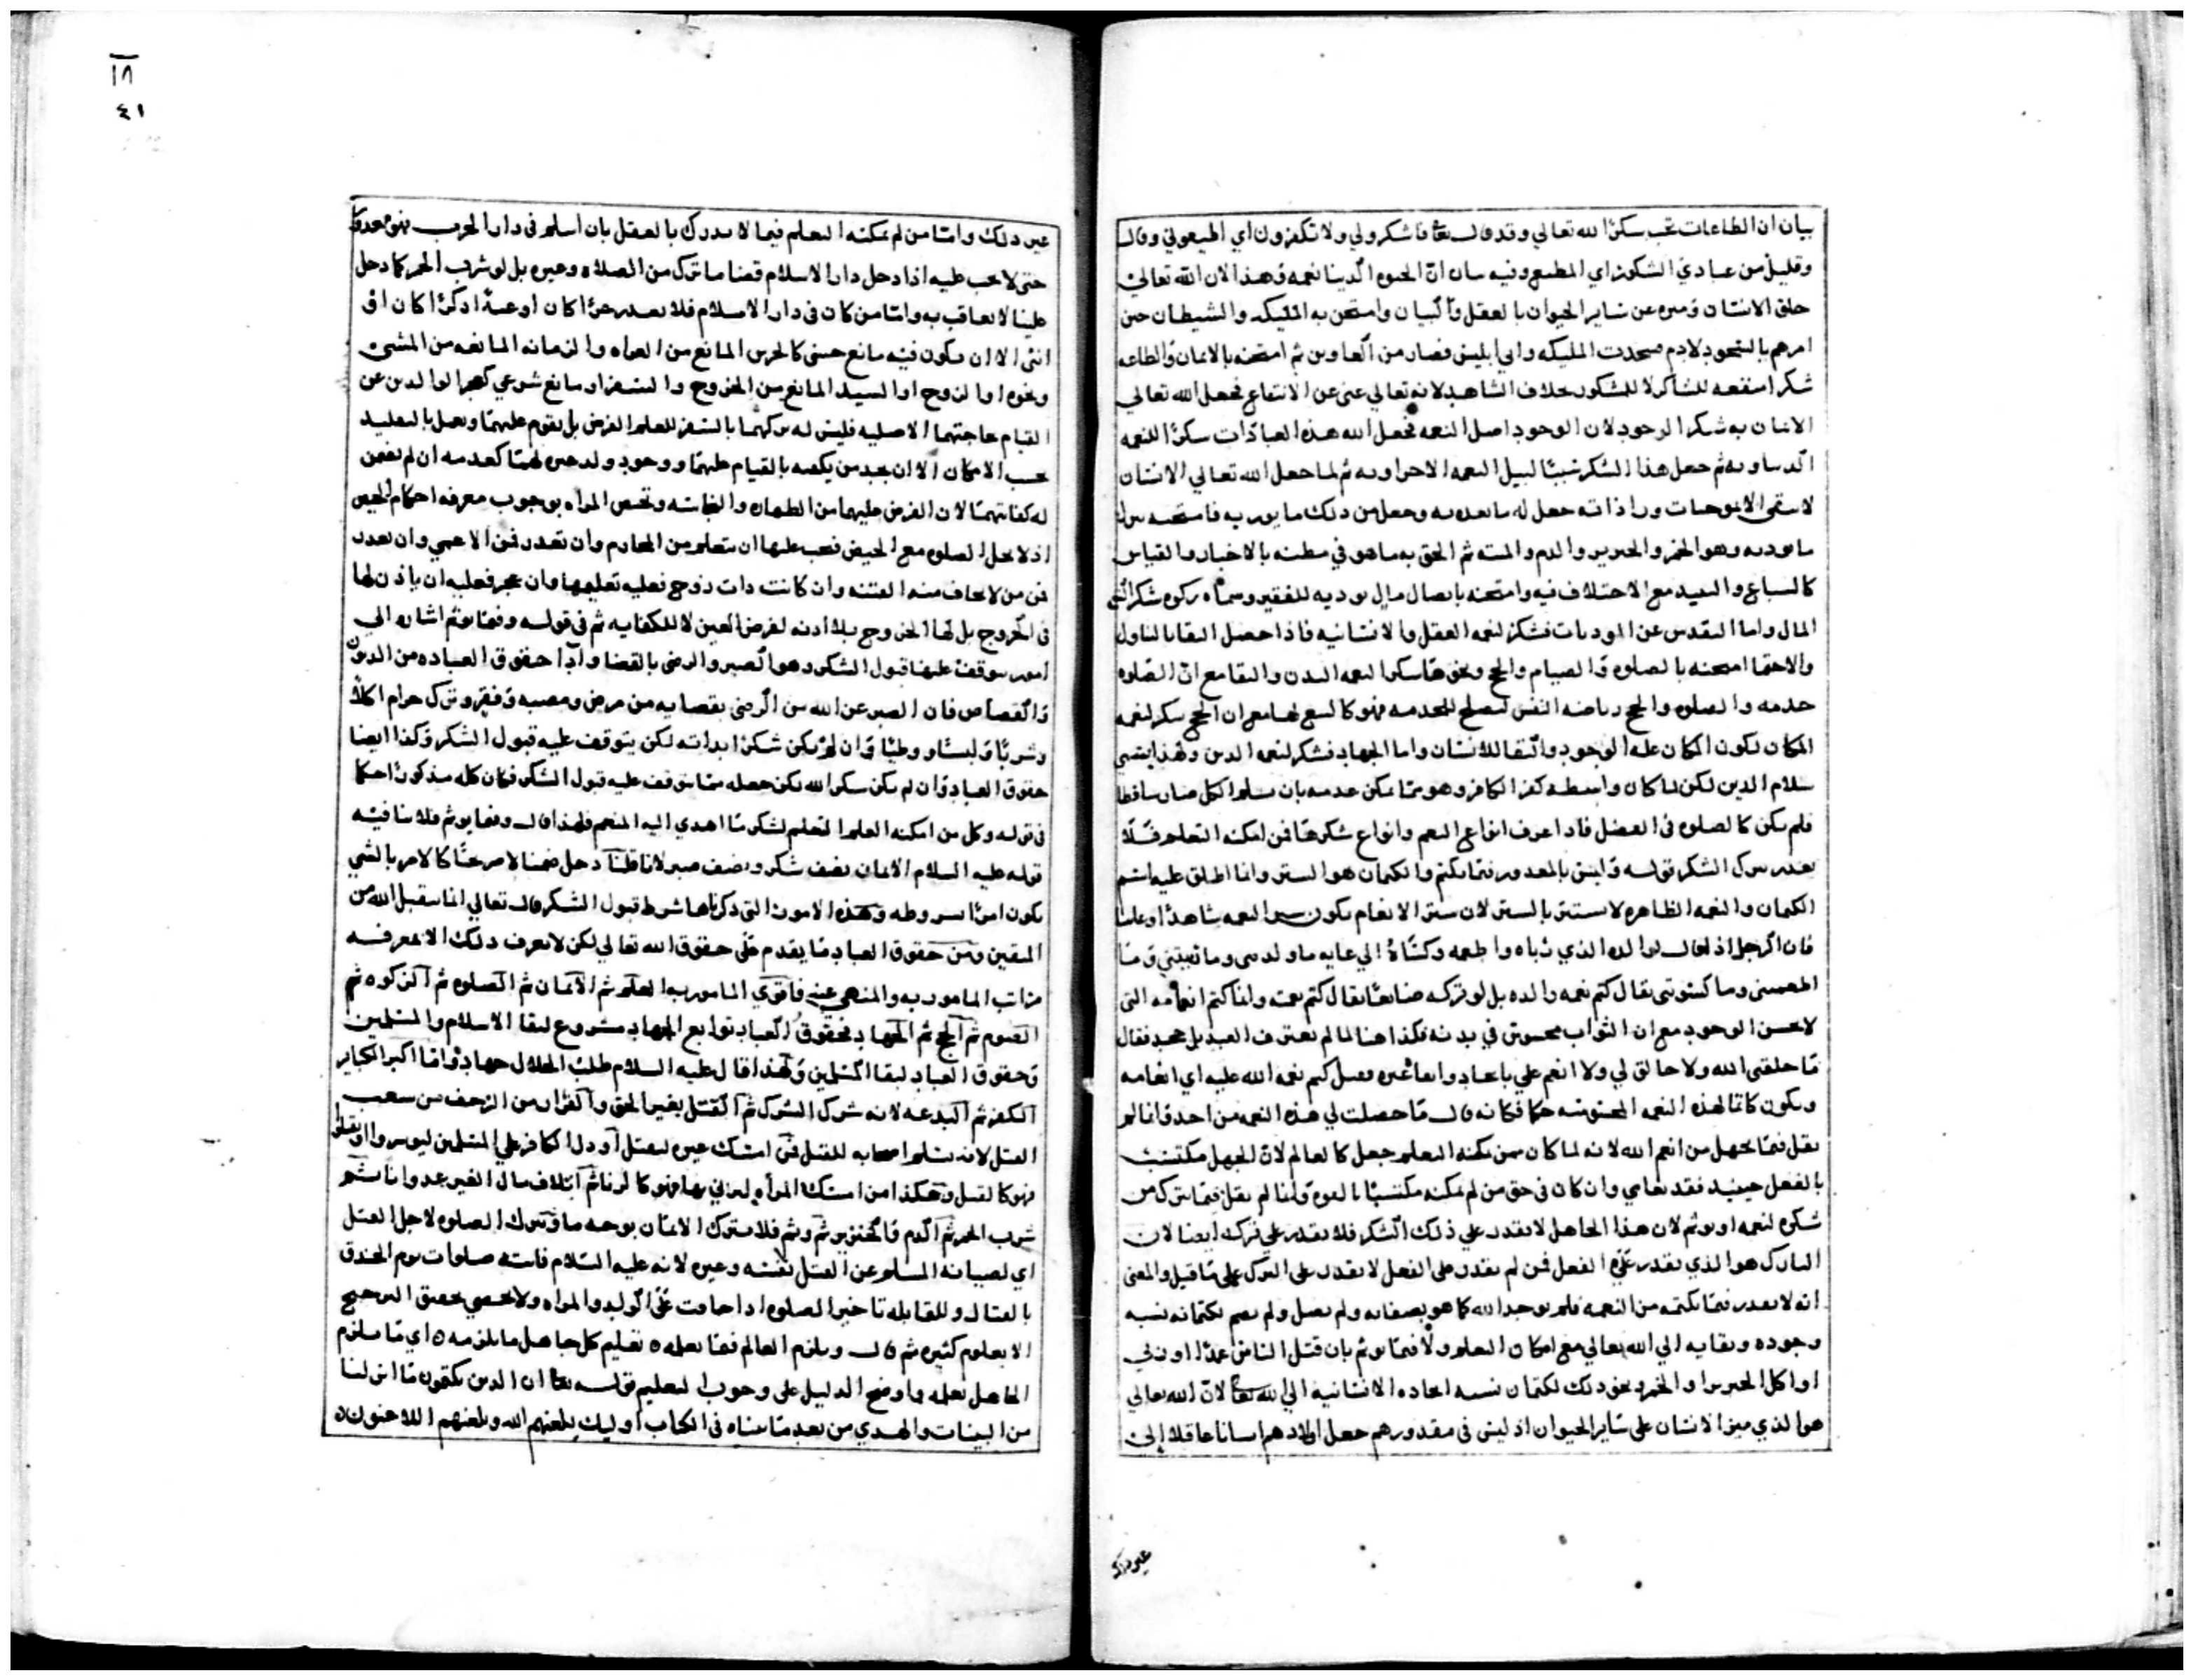 بيان ان الطاعات تجب شكرًا لله تعالى وقد قال تعالى فاشكرولي ولا تكفرون اي اطيعوني وقال
وقليل من عبادي الشكور اي المطيع وفيه بيان انّ الحيوه الدنيا نعمه وهذا لان الله تعالى
خلق الانسان وميزه عن ساير الحيوان بالعقل والبيان وامتحن به المليكه والشيطان حين
امرهم بالسجود لادم فسجدت المليكه وابى ابليس فصار من الغاوين ثم امتحنه بالايمان والطاعه
شكرا منفعه للشاكر لا للمشكور بخلاف الشاهد لانه تعالى غني عن الانتفاع فجعل الله تعالى
الايمان به شكر الوجود لان الوجود اصل النعمه فجعل الله هذه العبادات شكرًا للنعمه
الدنياويه ثم جعل هذا الشكر سببًا لنيل النعمه الاخراويه ثم لما جعل الله تعالى الانسان
لا يبقى الا جعل له ما بعد به وجعل من ذلك ما يوذيه فامتحنه بترك
ما يوذيه وهو الخمر والخنزير والدم والميته ثم الحق به ما هو في مظنه بالاخبار والقياس
كالسباع والنبيذ مع الاختلاف فيه وامتحنه بايصال مال يوديه للفقير وسماه زكوه شكر
المال واما التقدس عن الموذيات فشكر لنعمه العقل والانسانيه فاذا حصل البقا بالتناول
والاحتما امتحنه بالصلوه والصيام والحج ونحوها شكرا لنعمه البدن والبقا مع انّ الصلوه
خدمه والصلوه والحج رياضه النفس لتصلح للخدمه فهو كالتبع لها مع ان الحج شكر لنعمه
المكان لكون المكان عله الوجود والبقا للانسان واما الجهاد فشكر لنعمه الدين ولهذا ينتهي
بسلام الدين لكن لما كان واسطه كفر الكافر وهو مما يمكن عدمه بان يسلم الكل صار ساقطا
فلم يكن كالصلوه في الفضل فاذا عرف انواع النعم وانواع شكرها فمن امكنه التعلم فلا
يعذر بترك الشكر قوله وليس بالمعذور فيما يكتم والكتمان هو الستر وانما اطلق عليه اسم
الكتمان والنعمه الظاهره لا تستتر بالستر لان ستر الانعام يكون ستر النعمه شاهدًا وغايبًا
فان الرجل اذا قال لوالده الذي ربّاه واطعمه وكساه الي غايه ما ولدتني وما ربيتني وما
اطعمتني وما كسوتني يقال كتم نعمه والده بل لو تركه ضايعًا يقال كتم نعمته وانما كتم انعامه التي
لا يحسن الوجود مع ان الثواب محسوس في بدنه فكذا هنا لما لم يعترف العبد بل جحد فقال
ما خلقني الله ولا خالق لي ولا انعم علي بايجاد وابقا غيره فقيل كتم نعمه الله عليه اي انعامه
ويكون كاتمًا لهذه النعم المحسوسه حكما فكانه قال ما حصلت لي هذه النعمه من احد وانما لم
يقل فيما يجهل من انعم الله لانه لما كان ممن يمكنه التعلم جعل كالعالم لانّ الجهل مكتسب
بالفعل حينيذ فقد تعامي وان كان في حق من لم يمكنه مكتسبًا بالقوه وانما لم يقل فيما يترك من
شكره لنعمه او يوثم لان هذا الجاهل لا يقدر علي ذلك الشكر فلا يقدر علي تركه ايضا لان
التارك هو الذي يقدر علي الفعل فمن لم يقدر علي الفعل لا يقدر على الترك على ما قيل والمعنى
انه لا يعذر فيما يكتمه من النعمه فلم يوحد الله كما هو بصفاته ولم يصل ولم يصم بكتمانه نسبه
وجوده وبقايه الي الله تعالى مع امكان التعلم ولا فيما يوثم بان قتل الناس عمدًا او زني
او اكل الخنزير او الخمر ونحو ذلك لكتمان نسبه ايجاده الانسانيه الي الله تعالى لانّ الله تعالى
هو الذي ميز الانسان على ساير الحيوان اذ ليس في مقدورهم جعل اولادهم انسانا عاقلا إلي
غير ذلك
١٨
٤١
غير ذلك وامّا من لم يمكنه التعلم فيما لا يدرك بالعقل بان اسلم في دار الحرب فهو معذور
حتى لا يجب عليه اذا دخل دار الاسلام قضا ما ترك من الصلاه وغيره بل لو شرب الخمر كما دخل
علينا لا يعاقب به وامّا من كان في دار الاسلام فلا يعذر حرًا كان او عبدًا ذكرًا كان او
انثى الا ان يكون فيه مانع حسي كالخرس المانع من القراه والزمانه المانعه من المشي
ونحوه او الزوج او السيد المانع من الخروج والسفر او مانع شرعي كعجز الوالدين عن
القيام بحاجتهما الاصليه فليس له تركهما بالسفر للعلم الفرض بل يقوم عليهما ويعمل بالتقليد
بحسب الامكان الا ان يجد من يكفيه بالقيام عليهما ووجود ولد غيره لهما كعدمه ان لم يضمن
له كفايتهما لان الفرض عليهما من الطهاره والنجاسه وتختص المراه بوجوب معرفه احكام الحيض
اذ لا تحل الصلوه مع الحيض فيجب عليها ان تتعلم من المحارم وان تعذر فمن الاعمي وان تعذر
فمن من لا يخاف منه الفتنه وان كانت ذات زوج فعليه تعليمها وان عجز فعليه ان ياذن لها
في الخروج بل لها الخروج بلا اذنه لفرض العين لا للكفايه ثم في قوله وفيما يوثم اشاره الي
امور يتوقف عليها قبول الشكر وهو الصبر والرضي بالقضا واداء حقوق العباد من الديون
والقصاص فان الصبر عن الله من الرضى بقضايه من مرض ومصيبه وفقر وترك حرام اكلًا
وشربًا ولبسًا ووطيًا وان لم يكن شكرًا بذاته لكن يتوقف عليه قبول الشكر وكذا ايضا
حقوق العباد وان لم يكن شكر الله لكن جعله مما يتوقف عليه قبول الشكر فكان كله مذكورًا حكما
في قوله وكل من امكنه العلم اي التعلم لشكر ما اهدي اليه المنعم فلهذا قال وفيما يوثم فلا ينافيه
قوله عليه السلام الايمان نصف شكر ونصف صبر لانا قلنا دخل ضمنا لا صريحًا كالامر بالشي
يكون امرًا بشروطه وهذه الامور التي ذكرناها شرط قبول الشكر قال تعالي انما يتقبل الله من
المتقين ومن حقوق العباد ما يقدم على حقوق الله تعالي لكن لا يعرف ذلك الا بمعرفه
مراتب المامور به والمنهي عنه فاقوي المامور به العلم ثم الايمان ثم الصلوه ثم الزكوه ثم
الصوم ثم الحج ثم الجهاد فحقوق العباد توابع الجهاد مشروع لبقا الاسلام والمسلمين
وحقوق العباد لبقا المسلمين ولهذا قال عليه السلام طلب الحلال جهاد واما اكبر الكباير
الكفر ثم البدعه لانه شرك الشرك ثم القتل بغير الحق والفرار من الزحف من سبب
القتل لانه تسلم اصحابه للقتل فمن امسك غيره ليقتل او دل الكافر علي المسلمين ليوسروا او يقتلوا
فهو كالقتل وهكذا من امسك المراه ليزني بها فهو كالزنا ثم اتلاف مال الغير عدوانا ثم
شرب الخمر ثم الدم والخنزير ثم وثم فلا يترك الايمان بوجه ما وتترك الصلوه لاجل القتل
اي لصيانه المسلم عن القتل نفسه وغيره لانه عليه السلام فاتته صلوات يوم الخندق
بالقتال وللقابله تاخير الصلوه اذا خافت علي الولد والمراه ولا يحصي تحقيق الترجيح
الا بعلوم كثيره ثم قال ويلزم العالم فيما يعلمه ٥ تعليم كل جاهل ما يلزمه ٥ اي ما يلزم
الجاهل تعلمه واوضح الدليل على وجوب التعليم قوله تعالى ان الذين يكتمون ما انزلنا
من البينات والهدي من بعد ما بيناه في الكتاب اوليك يلعنهم الله ويلعنهم اللاعنون ٥